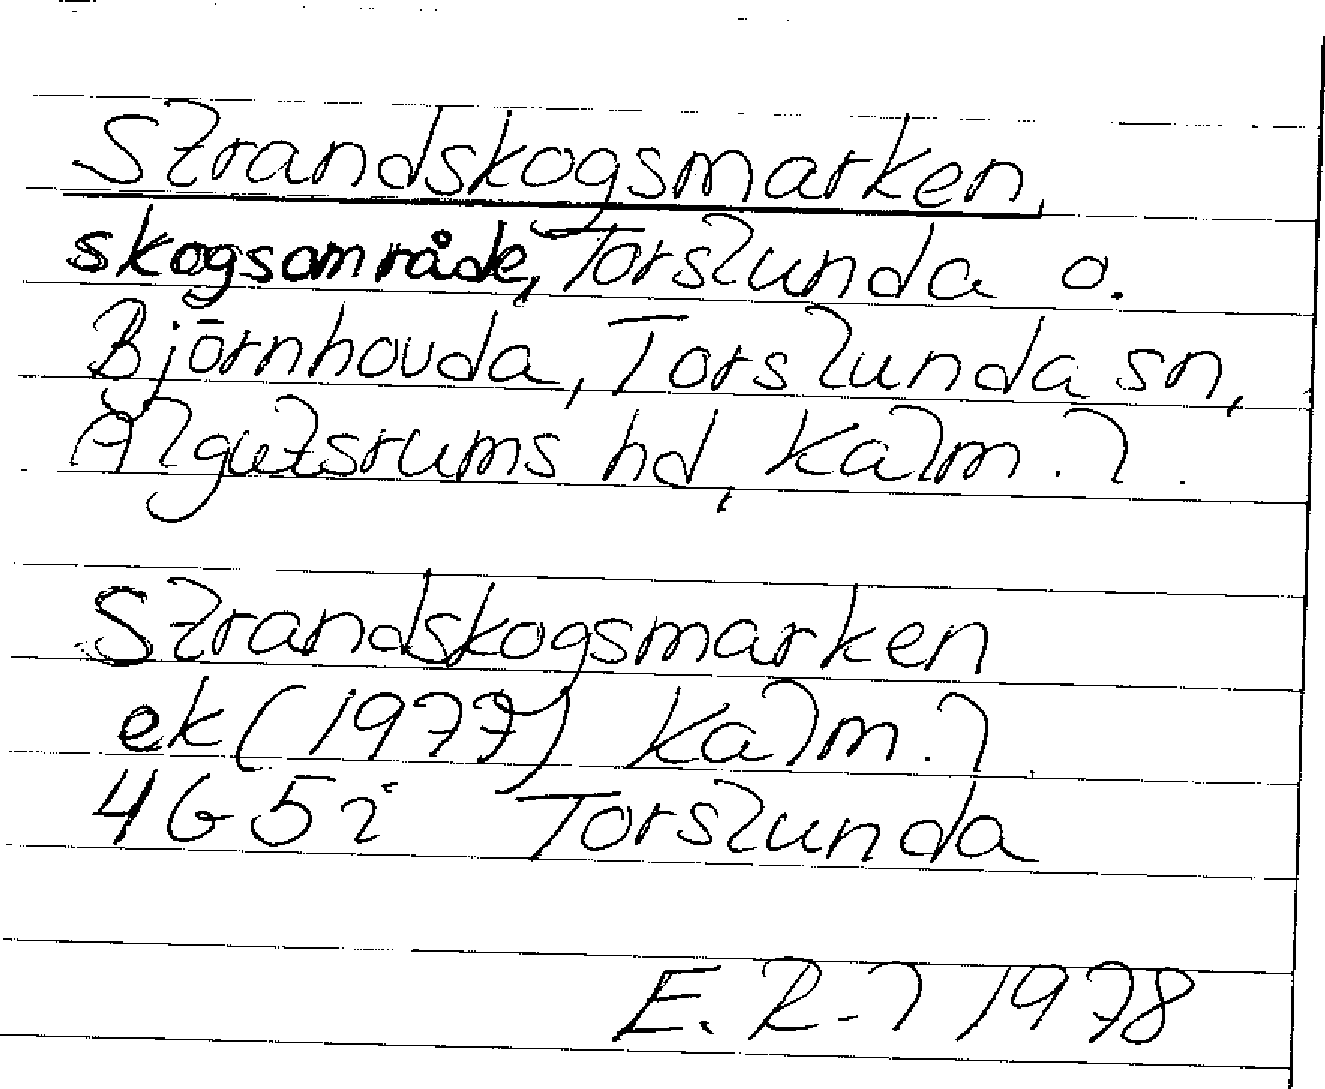 Strandskogsmarken,
skogsområde, Torslunda o.
Björnhovda, Torslunda sn,
Algutsrums hd, Kalm. l.
Strandskogsmarken
ek (1977) Kalm. l
4G5i Torslunda
E. R-l 1978